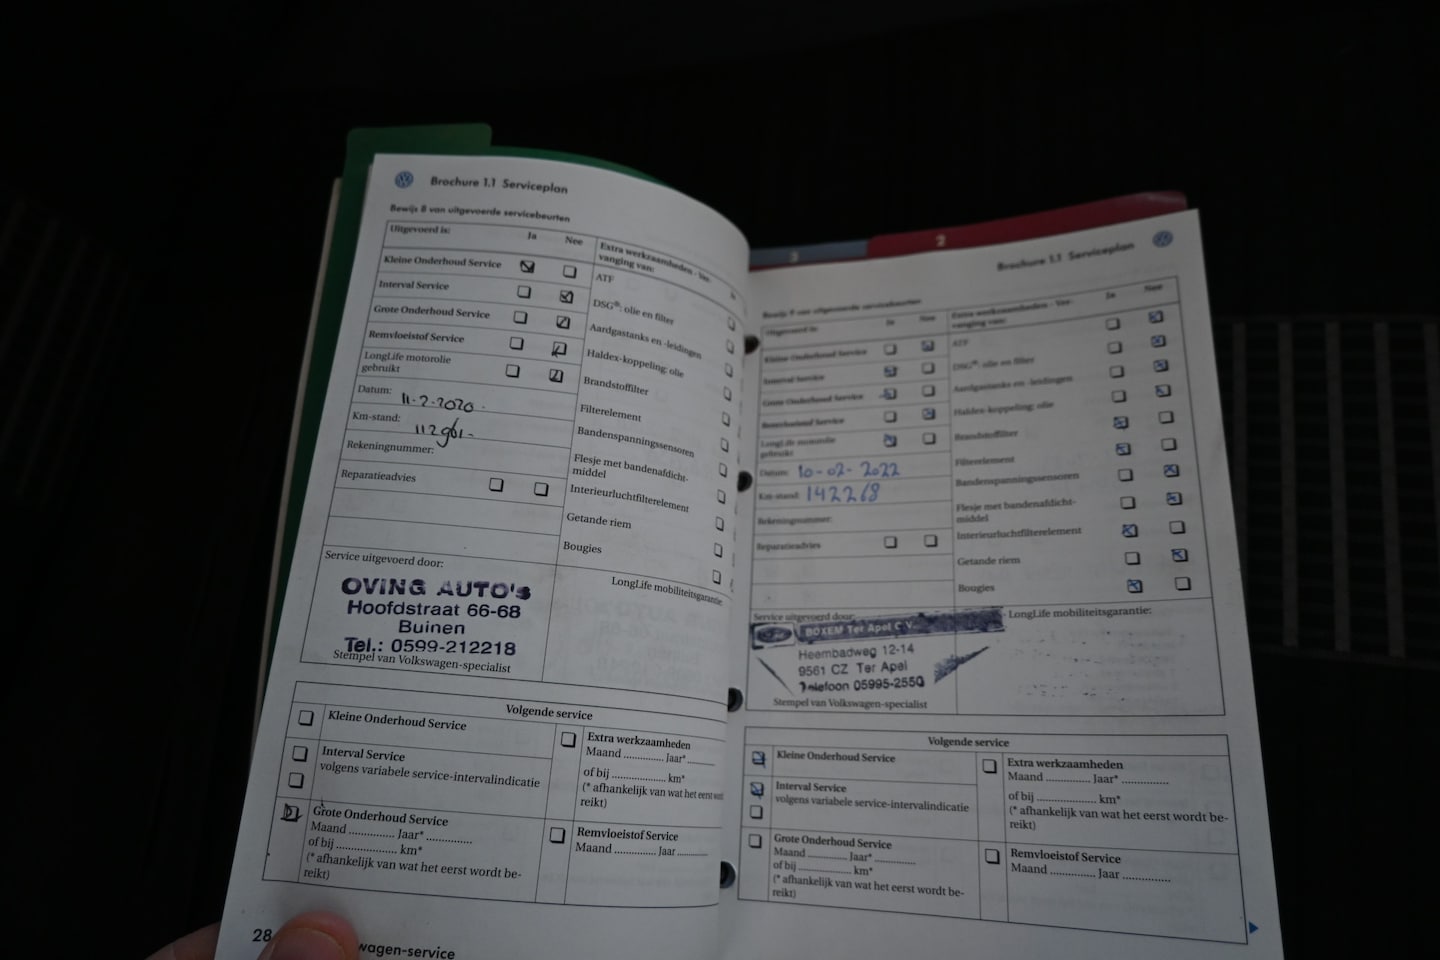 Brochure 1.1 Serviceplan
Bewijs 8 van uitgevoerde servicebeurten
Uitgevoerd is:
Ja
Nee
Extra werkzaamheden - Ver-
vanging van:
Kleine Onderhoud Service
Interval Service
Grote Onderhoud Service
Remvloeistof Service
LongLife motorolie
gebruikt
Datum: 11-2-2020
Km-stand: 112961-
Rekeningnummer:
Reparatieadvies
ATF
DSG®: olie en filter
Aardgastanks en -leidingen
Haldex-koppeling: olie
Brandstoffilter
Filterelement
Bandenspanningssensoren
Flesje met bandenafdicht-
middel
Interieurluchtfilterelement
Getande riem
Bougies
Service uitgevoerd door:
OVING AUTO's
Hoofdstraat 66-68
Buinen
Tel.: 0599-212218
Stempel van Volkswagen-specialist
LongLife mobiliteitsgarantie
Volgende service
Kleine Onderhoud Service
Interval Service
volgens variabele service-intervalindicatie
Grote Onderhoud Service
Maand .............. Jaar* ..............
of bij .................... km*
(* afhankelijk van wat het eerst wordt be-
reikt)
Extra werkzaamheden
Maand ............. Jaar* .........
of bij .................... km*
(* afhankelijk van wat het eerst
reikt)
Remvloeistof Service
Maand .............. Jaar ...........
28
wagen-service
3
2
Brochure 1.1 Serviceplan
Bewijs 9 van uitgevoerde servicebeurten
Uitgevoerd is:
Ja
Nee
Extra werkzaamheden - Ver-
vanging van:
Ja
Nee
Kleine Onderhoud Service
Interval Service
Grote Onderhoud Service
Remvloeistof Service
LongLife motorolie
gebruikt
Datum: 10-02-2022
Km-stand: 142268
Rekeningnummer:
Reparatieadvies
ATF
DSG®: olie en filter
Aardgastanks en -leidingen
Haldex-koppeling: olie
Brandstoffilter
Filterelement
Bandenspanningssensoren
Flesje met bandenafdicht-
middel
Interieurluchtfilterelement
Getande riem
Bougies
Service uitgevoerd door:
BOXEM Ter Apel C.V.
Heembadweg 12-14
9561 CZ Ter Apel
Telefoon 05995-2550
Stempel van Volkswagen-specialist
LongLife mobiliteitsgarantie:
Volgende service
Kleine Onderhoud Service
Interval Service
volgens variabele service-intervalindicatie
Grote Onderhoud Service
Maand ............. Jaar* ..............
of bij .................... km*
(* afhankelijk van wat het eerst wordt be-
reikt)
Extra werkzaamheden
Maand .............. Jaar* ..............
of bij .................... km*
(* afhankelijk van wat het eerst wordt be-
reikt)
Remvloeistof Service
Maand .............. Jaar ..............